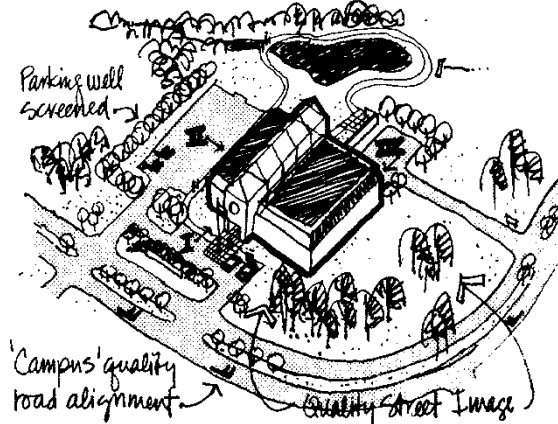 Parking well
screened
'Campus' quality
road alignment
Quality Street Image